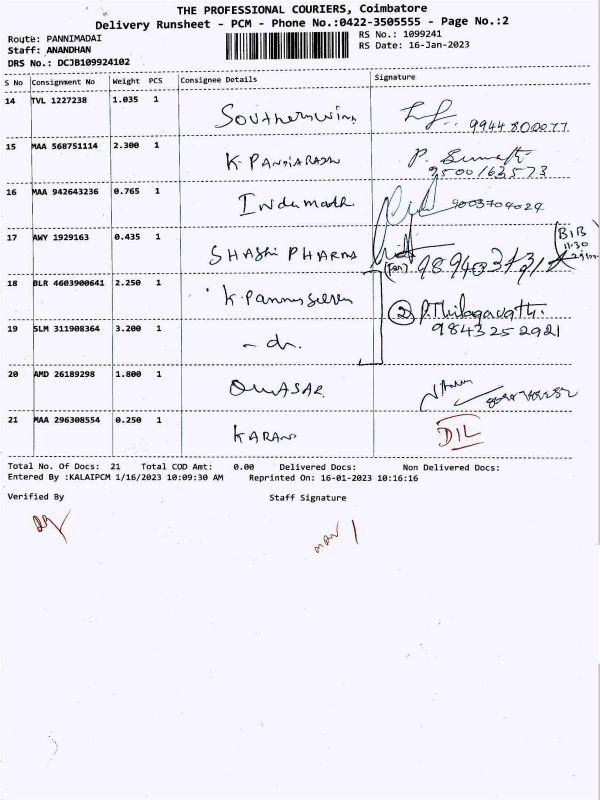 THE PROFESSIONAL COURIERS, Coimbatore
Delivery Runsheet - PCM - Phone No.:0422-3505555 - Page No.:2
Route: PANNIMADAI
RS No.: 1099241
Staff: ANANDHAN
RS Date: 16-Jan-2023
DRS No.: DCJB109924102
S No Consignment No Weight PCS Consignee Details Signature
14 TVL 1227238 1.035 1 Southernwing 9944800077
15 MAA 568751114 2.300 1 K. PANDIARAJAN P. 9500163573
16 MAA 942643236 0.765 1 Indumathi 9003704024
17 AWY 1929163 0.435 1 SHASHI PHARMA
18 BLR 4603900641 2.250 1 ② P. Thilagavathi.
19 SLM 311908364 3.200 1 - do. 9843252921
20 AMD 26189298 1.800 1
21 MAA 296308554 0.250 1 KARAN D/L
Total No. Of Docs: 21 Total COD Amt: 0.00 Delivered Docs: Non Delivered Docs:
Entered By :KALAIPCM 1/16/2023 10:09:30 AM Reprinted On: 16-01-2023 10:16:16
Verified By Staff Signature